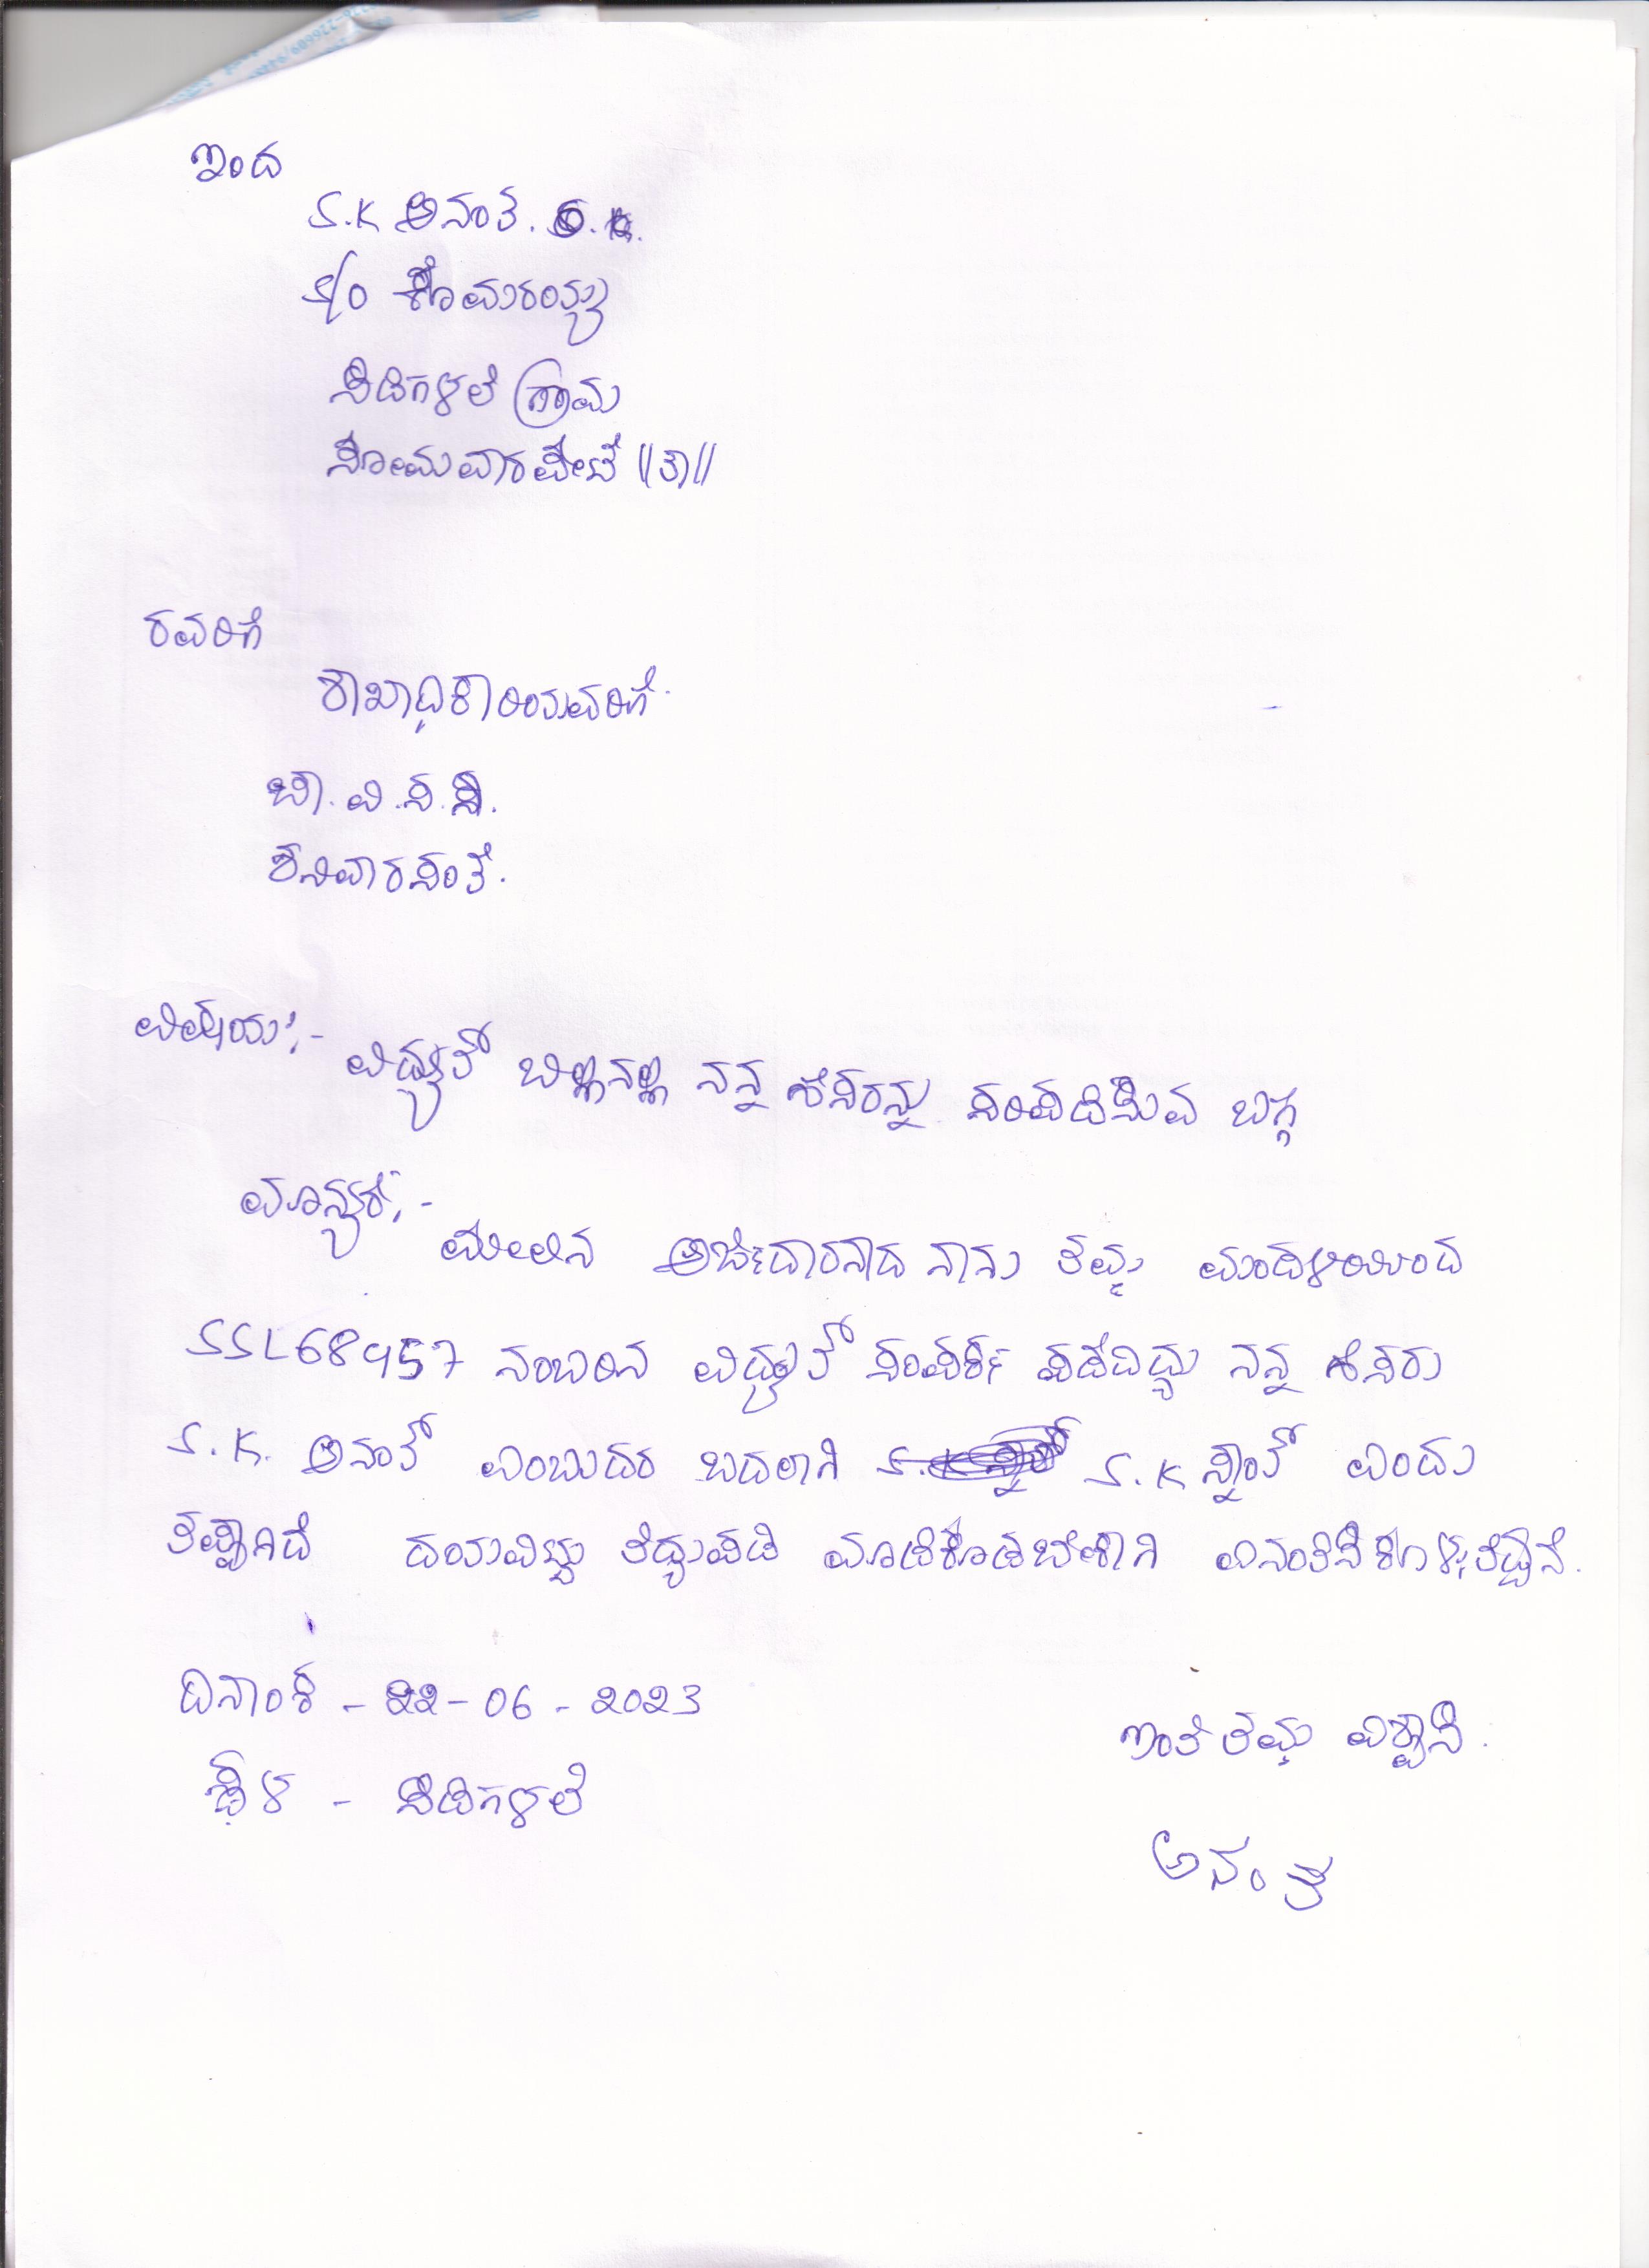 ಇಂದ
S.K ಅನಂತ.
S/o ಕೊಮರಯ್ಯ
ಸಿಡಿಗಳಲೆ ಗ್ರಾಮ
ಸೋಮವಾರಪೇಟೆ ||ತಾ||
ರವರಿಗೆ
ಶಾಖಾಧಿಕಾರಿಯವರಿಗೆ.
ಚಾ. ವಿ. ಸ. ನಿ.
ಶನಿವಾರಸಂತೆ.
ವಿಷಯ:- ವಿದ್ಯುತ್ ಬಿಲ್ಲಿನಲ್ಲಿ ನನ್ನ ಹೆಸರನ್ನು ಸರಿಪಡಿಸುವ ಬಗ್ಗೆ
ಮಾನ್ಯರೆ,-
ಮೇಲಿನ ಅರ್ಜಿದಾರನಾದ ನಾನು ತಮ್ಮ ಮಂಡಳಿಯಿಂದ
SSL68457 ನಂಬರಿನ ವಿದ್ಯುತ್ ಸಂಪರ್ಕ ಪಡೆದಿದ್ದು ನನ್ನ ಹೆಸರು
S.K. ಅನಂತ್ ಎಂಬುದರ ಬದಲಾಗಿ S.K ಸ್ನಾಂತ್ ಎಂದು
ತಪ್ಪಾಗಿದೆ ದಯವಿಟ್ಟು ತಿದ್ದುಪಡಿ ಮಾಡಿಕೊಡಬೇಕಾಗಿ ವಿನಂತಿಸಿಕೊಳ್ಳುತ್ತಿದ್ದೇನೆ.
ದಿನಾಂಕ - 22-06-2023
ಇಂತಿ ತಮ್ಮ ವಿಶ್ವಾಸಿ.
ಸ್ಥಳ - ಸಿಡಿಗಳಲೆ
ಅನಂತ